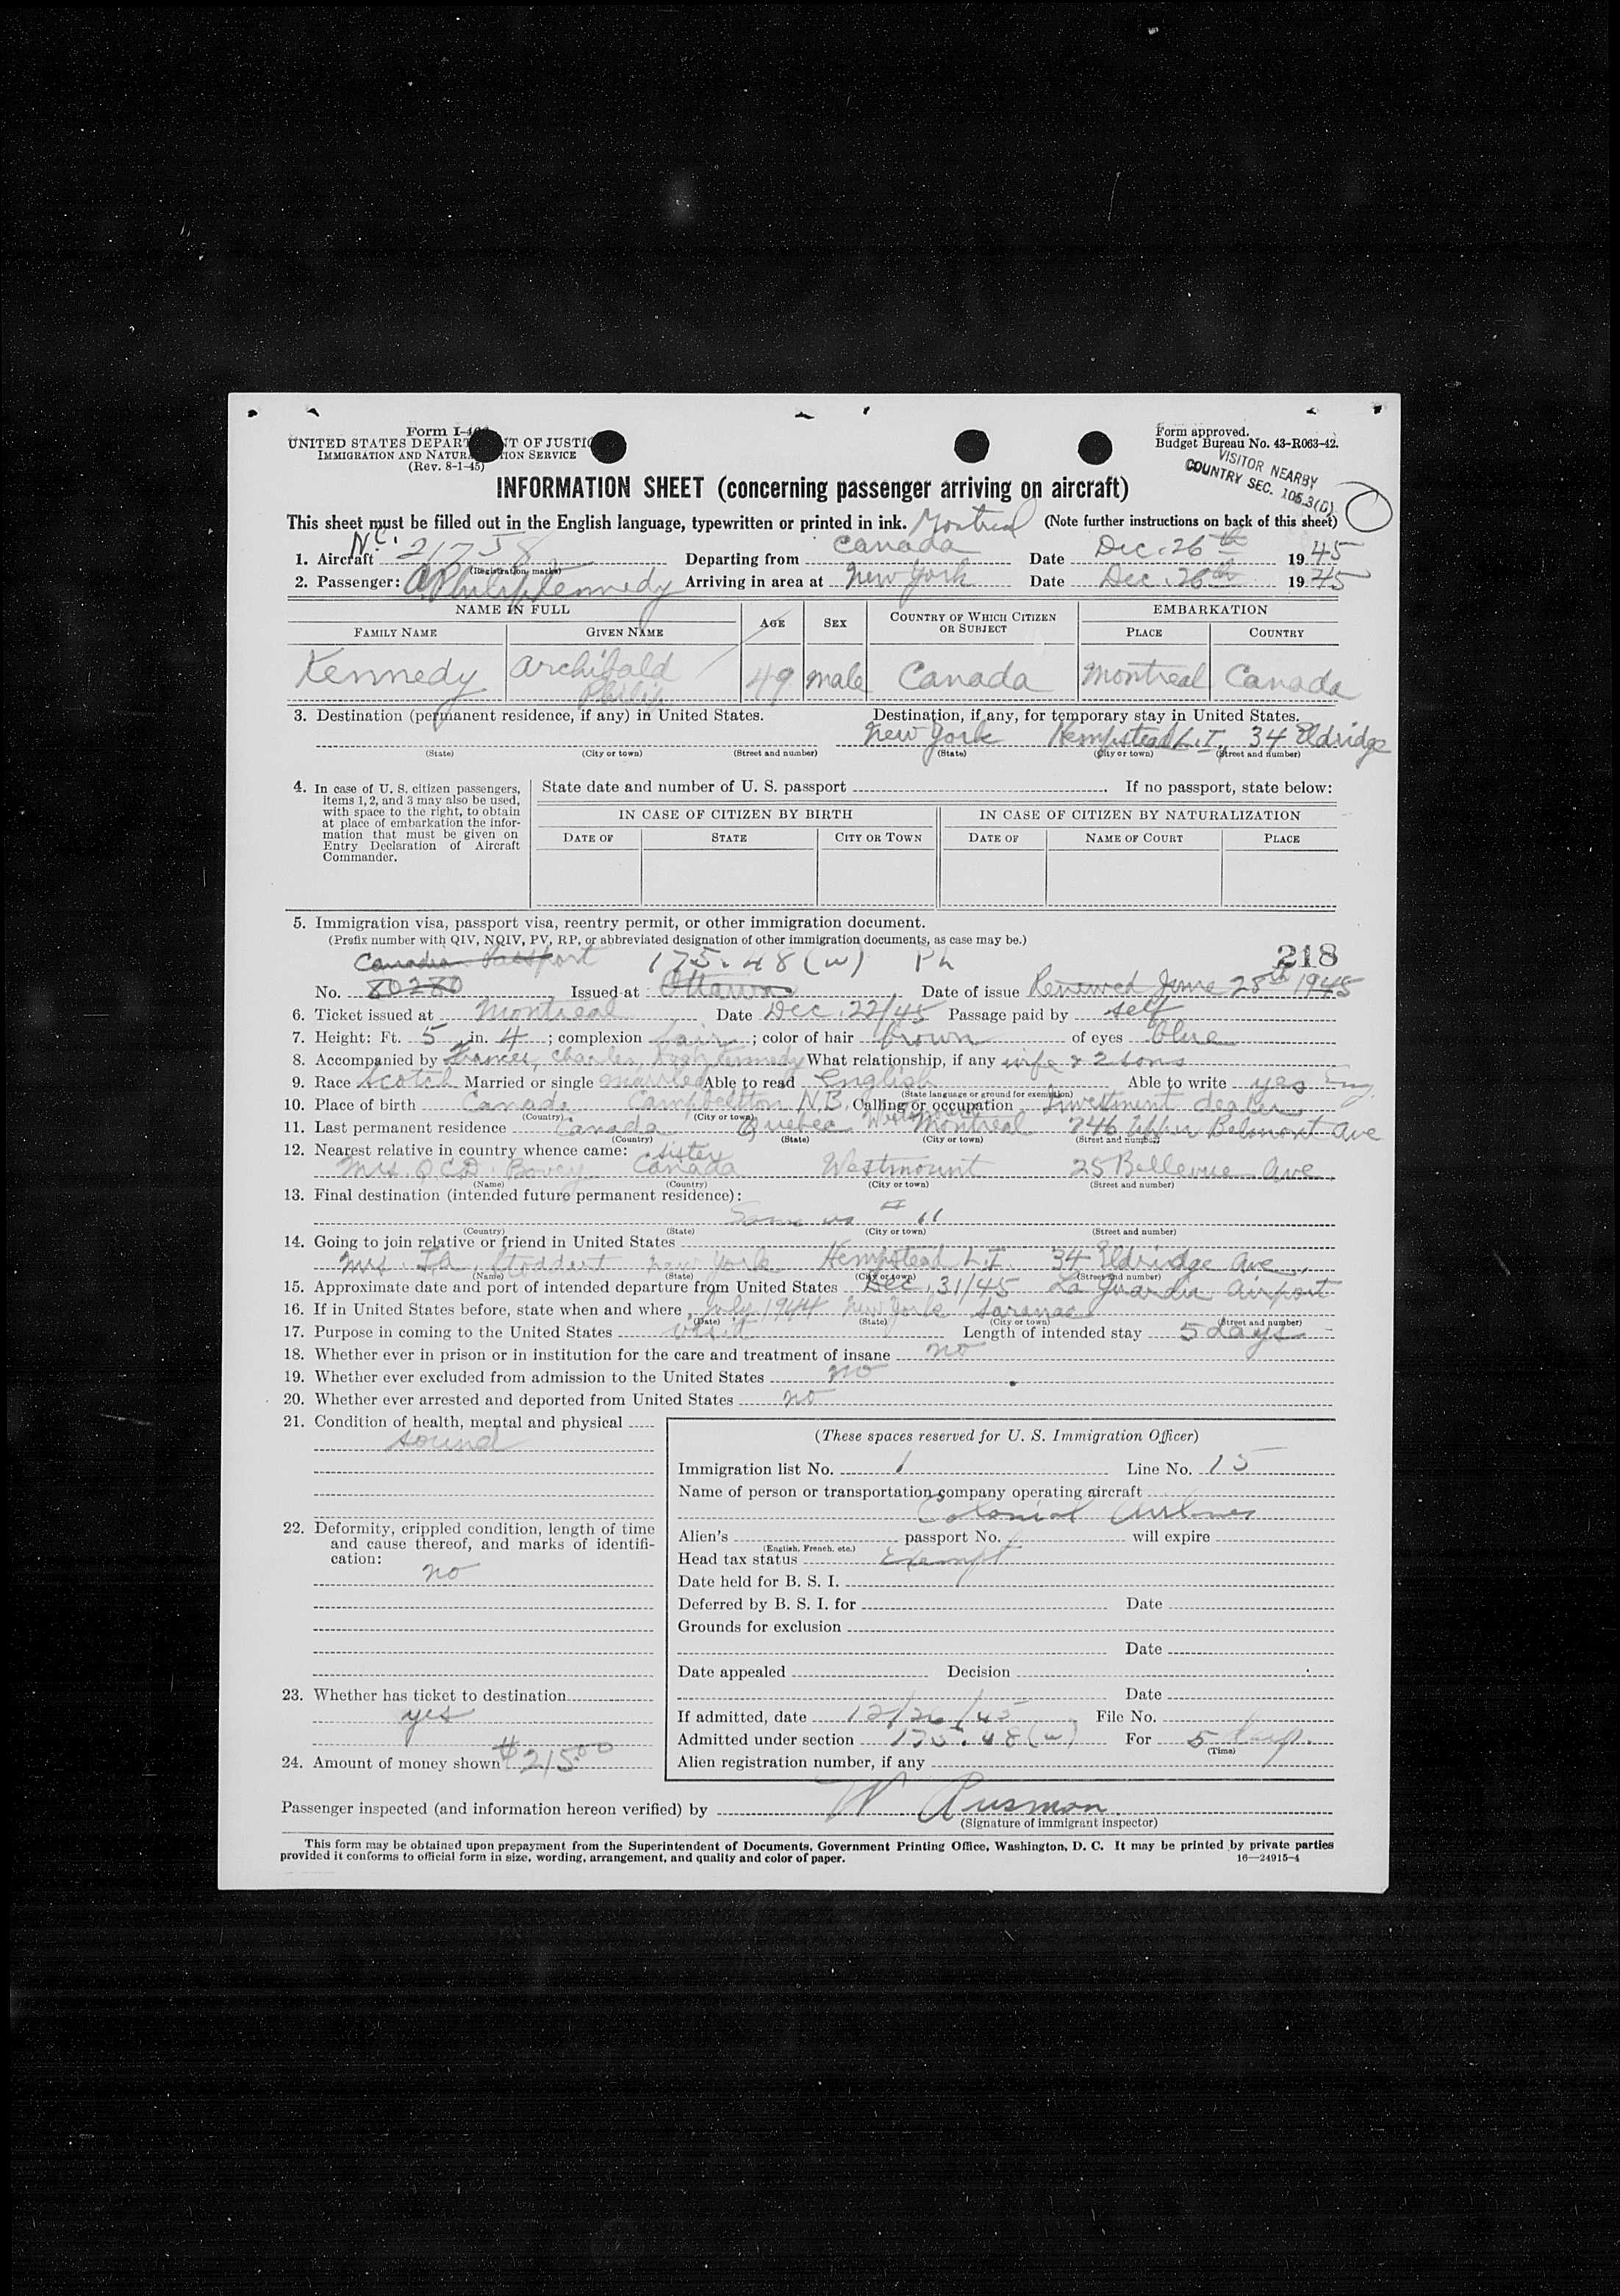 Form I-
UNITED STATES DEPAR NT OF JUSTIC
IMMIGRATION AND NATURA TION SERVICE
(Rev. 8-1-45)
Form approved.
Budget Bureau No. 43-R063-42.
VISITOR NEARBY
COUNTRY SEC. 105.3(D)
INFORMATION SHEET (concerning passenger arriving on aircraft)
This sheet must be filled out in the English language, typewritten or printed in ink. Montreal (Note further instructions on back of this sheet)
1. Aircraft N.C. 21758 Departing from Canada Date Dec. 26th 1945
(Registration marks)
2. Passenger: A. Philip Kennedy Arriving in area at New York Date Dec. 26th 1945
NAME IN FULL AGE SEX COUNTRY OF WHICH CITIZEN OR SUBJECT EMBARKATION
FAMILY NAME GIVEN NAME PLACE COUNTRY
Kennedy Archibald Philip 49 male Canada Montreal Canada
3. Destination (permanent residence, if any) in United States. Destination, if any, for temporary stay in United States.
New York Hempstead L.I. 34 Eldridge
(State) (City or town) (Street and number) (State) (City or town) (Street and number)
4. In case of U. S. citizen passengers, items 1, 2, and 3 may also be used, with space to the right, to obtain at place of embarkation the information that must be given on Entry Declaration of Aircraft Commander.
State date and number of U. S. passport . If no passport, state below:
IN CASE OF CITIZEN BY BIRTH IN CASE OF CITIZEN BY NATURALIZATION
DATE OF STATE CITY OR TOWN DATE OF NAME OF COURT PLACE
5. Immigration visa, passport visa, reentry permit, or other immigration document.
(Prefix number with QIV, NQIV, PV, RP, or abbreviated designation of other immigration documents, as case may be.)
218
Canadian Passport 175.48(w) Ph
No. 80280 Issued at Ottawa Date of issue Renewed June 28th 1945
6. Ticket issued at Montreal Date Dec. 22/45 Passage paid by self
7. Height: Ft. 5 in. 4 ; complexion fair ; color of hair brown of eyes blue
8. Accompanied by Frances, Charles, Kennedy What relationship, if any wife & 2 sons
9. Race Scotch Married or single married Able to read English Able to write yes Eng
(State language or ground for exemption)
10. Place of birth Canada Campbellton N.B. Calling or occupation Investment dealer
(Country) (City or town)
11. Last permanent residence Canada Quebec Westmount Montreal 746 Upper Belmont Ave
(Country) (State) (City or town) (Street and number)
12. Nearest relative in country whence came: sister
Mrs. Bovey Canada Westmount 25 Bellevue Ave.
(Name) (Country) (City or town) (Street and number)
13. Final destination (intended future permanent residence):
Same as " 11
(Country) (State) (City or town) (Street and number)
14. Going to join relative or friend in United States
Mrs. Stoddert New York Hempstead L.I. 34 Eldridge Ave.
(Name) (State) (City or town) (Street and number)
15. Approximate date and port of intended departure from United States Dec. 31/45 La Guardia Airport
16. If in United States before, state when and where July 1944 New York Saranac
(Date) (State) (City or town) (Street and number)
17. Purpose in coming to the United States visit Length of intended stay 5 days
18. Whether ever in prison or in institution for the care and treatment of insane no
19. Whether ever excluded from admission to the United States no
20. Whether ever arrested and deported from United States no
21. Condition of health, mental and physical
sound
22. Deformity, crippled condition, length of time and cause thereof, and marks of identification:
no
23. Whether has ticket to destination
yes
24. Amount of money shown $215.00
(These spaces reserved for U. S. Immigration Officer)
Immigration list No. 1 Line No. 15
Name of person or transportation company operating aircraft
Colonial Airlines
Alien's passport No. will expire
(English, French, etc.)
Head tax status Exempt
Date held for B. S. I.
Deferred by B. S. I. for Date
Grounds for exclusion
Date
Date appealed Decision
Date
If admitted, date 12/26/45 File No.
Admitted under section 175.48(w) For 5 days
(Time)
Alien registration number, if any
Passenger inspected (and information hereon verified) by W
(Signature of immigrant inspector)
This form may be obtained upon prepayment from the Superintendent of Documents, Government Printing Office, Washington, D. C. It may be printed by private parties
provided it conforms to official form in size, wording, arrangement, and quality and color of paper. 16—24915-4